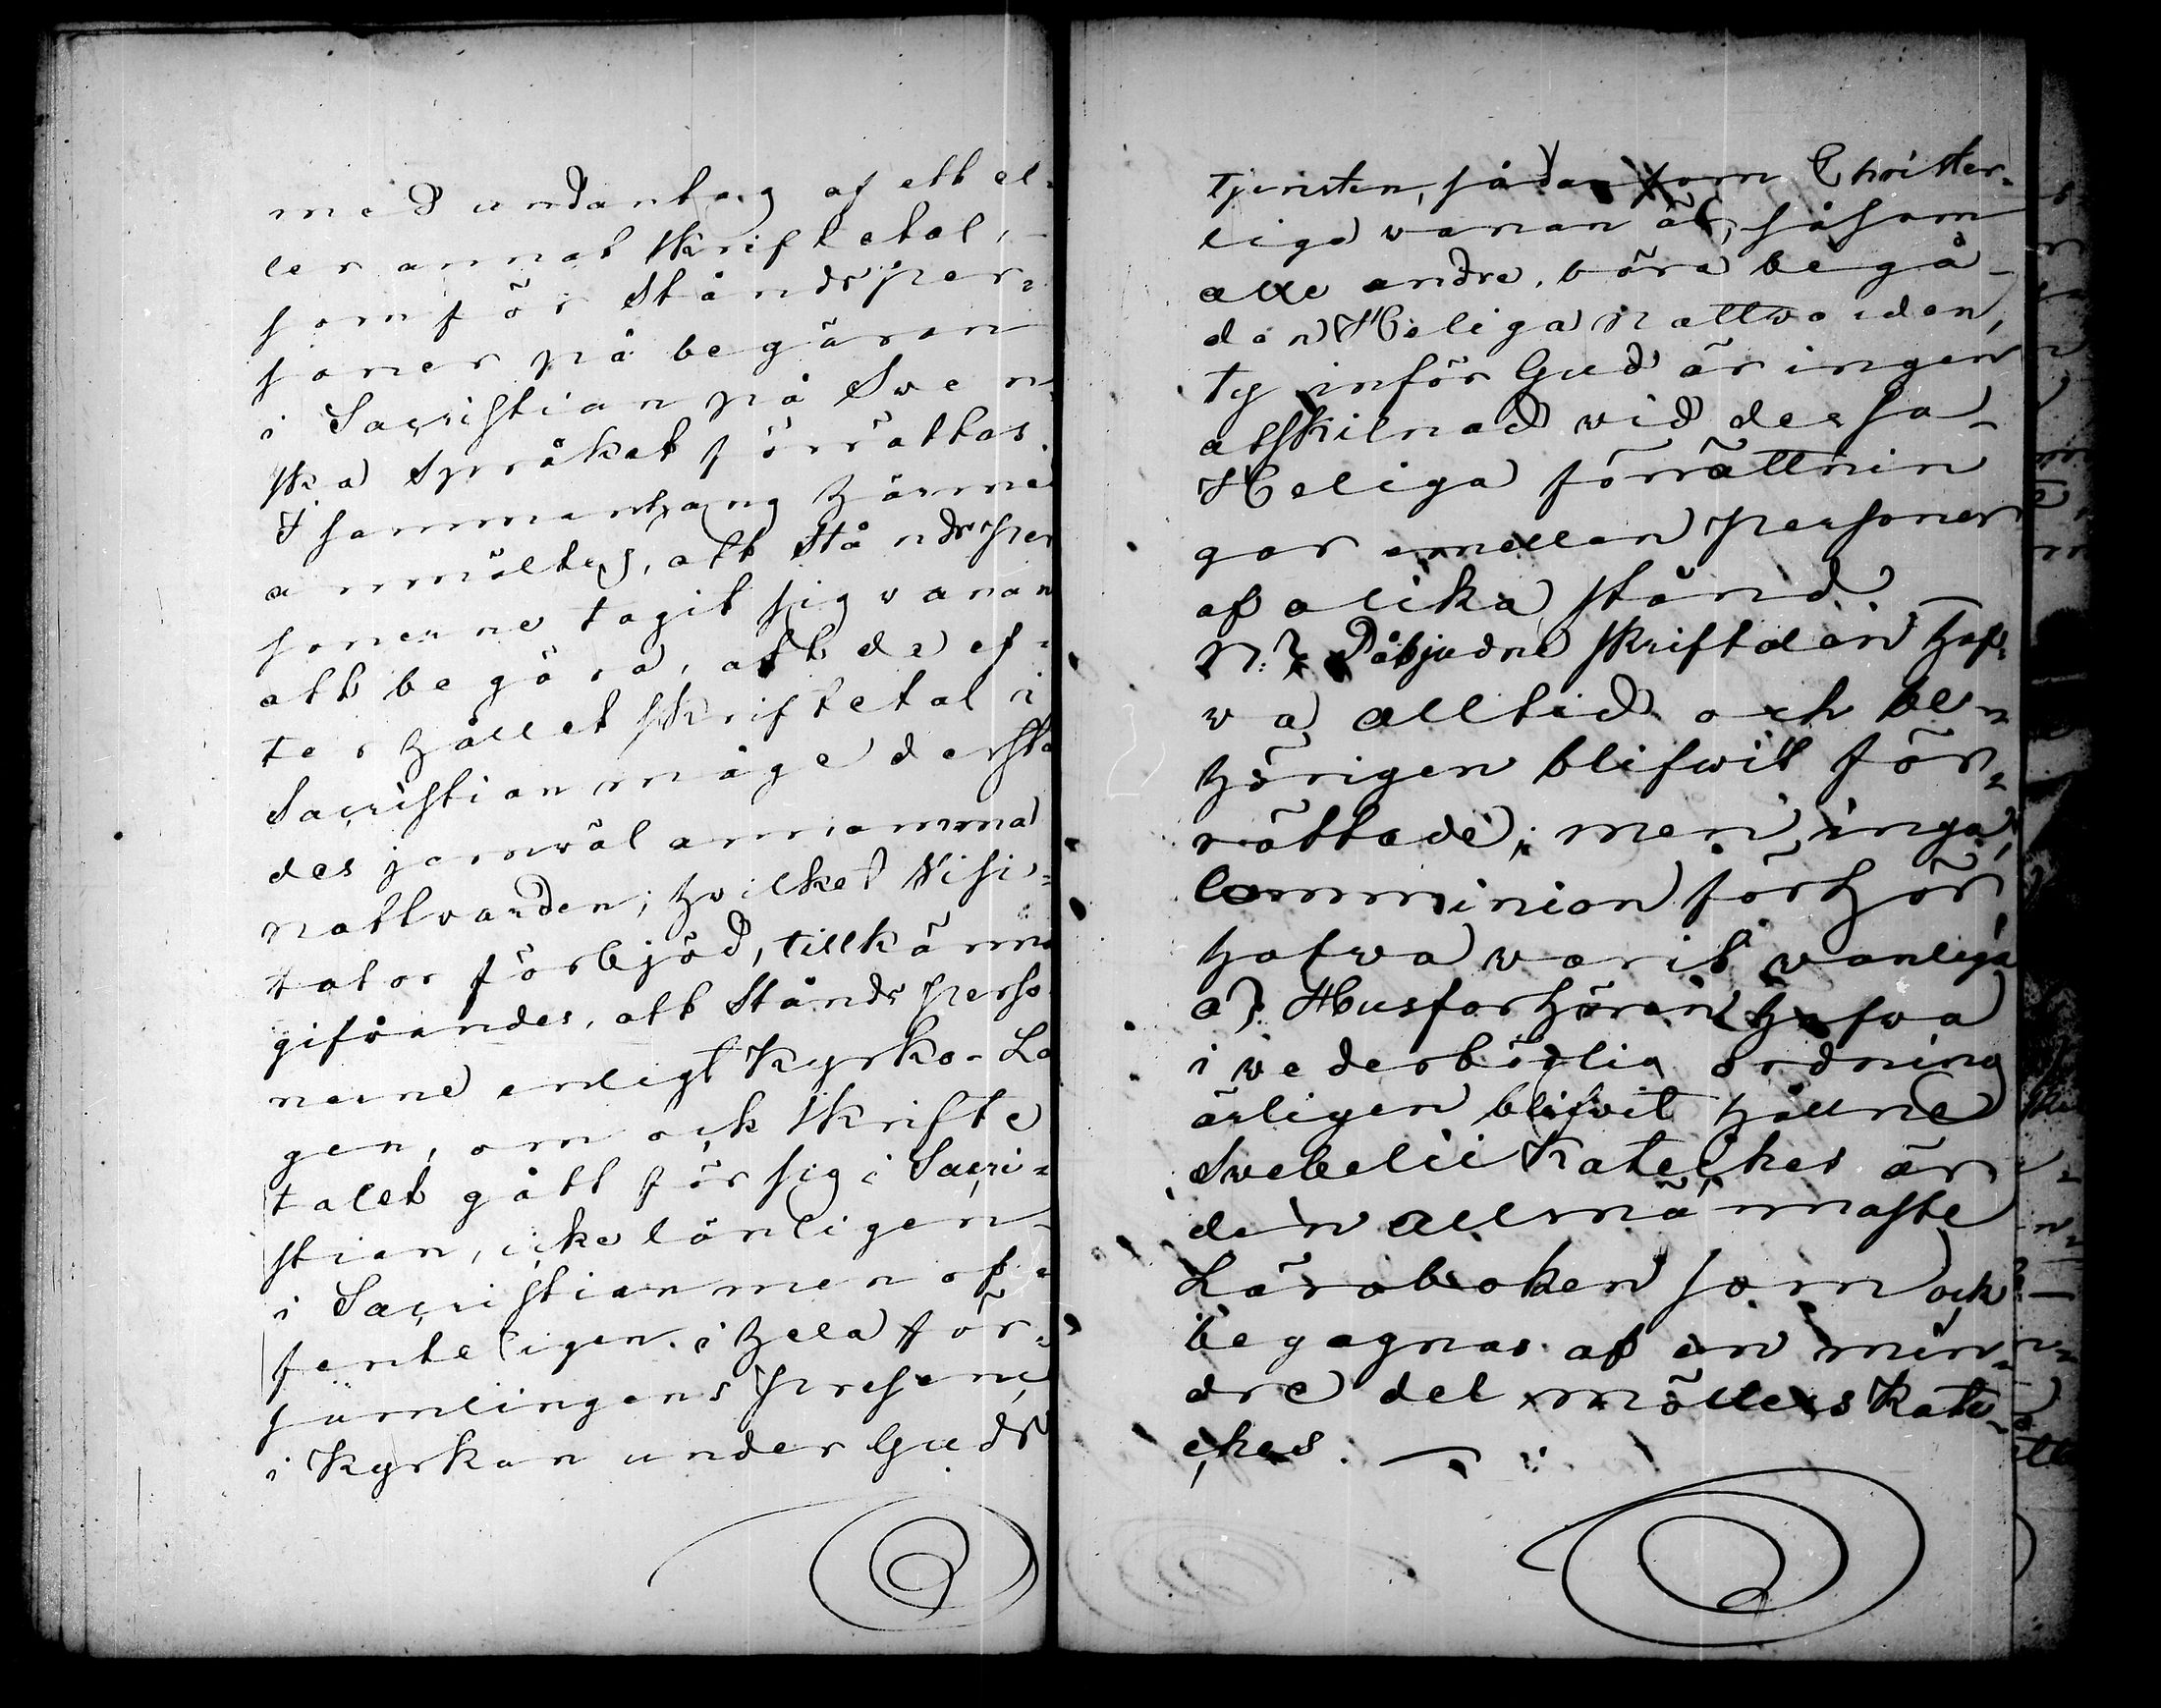 med undantag af ett el-
ler annat skriftetal,
som för Ståndsper-
soner på begäran
i Sacristian på Swen-
ska Språket förrättas.
I sammanhang härme
anmältes, att Ståndsper
sonerne tagit sig vanan
att begära, att de ef-
ter hållet skriftetal i
Sacristian måge dersta
des jemväl annamma
nattvarden; hvilket Visi-
tator förbjöd, tillkänna
gifvandes, att Stånds perso
nerne enligt Kyrko-La
gen, om ock skrifte
talet gått för sig i Sacri-
stian, icke lönligen
i Sacristian men of-
fenteligen i hela för-
samlingens presence
i Kyrkan under Guds
tjensten, sådan som Christer-
liga vanan är, såsom
alle andre, böra begå
den Heliga nattvarden,
ty inför Gud är ingen
åtskilnad wid dessa
Heliga förrättnin
gar emellan personer
af olika stånd
N:7 Påbjudne skriftalen haf-
va alltid och be-
hörigen blifwit för-
rättade; men inga
Comminion förhör
hafva varit vanliga
8) Husforhören hafva
i vederbörlig ordning
årligen blifvit hållne
Svebelii Kateckes är
den allmännaste
Läroboken som ock
begagnas af en min-
dre del Möllers Kate-
ches.